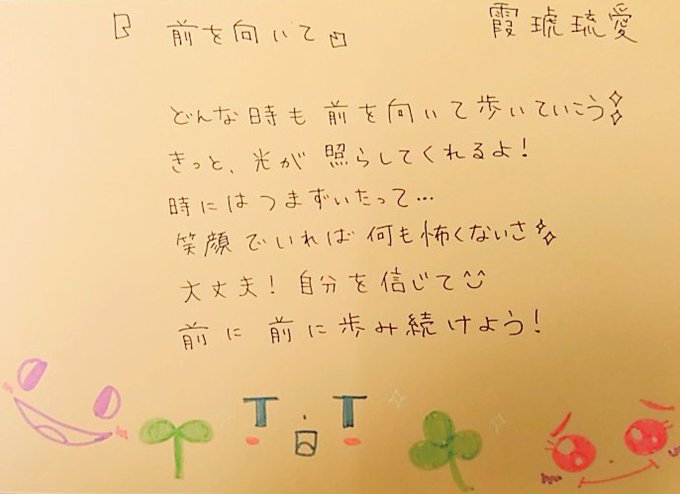 『前を向いて』 霞琥琉愛
どんな時も前を向いて歩いていこう
きっと、光が照らしてくれるよ！
時にはつまずいたって…
笑顔でいれば何も怖くないさ
大丈夫！自分を信じて
前に前に歩み続けよう！